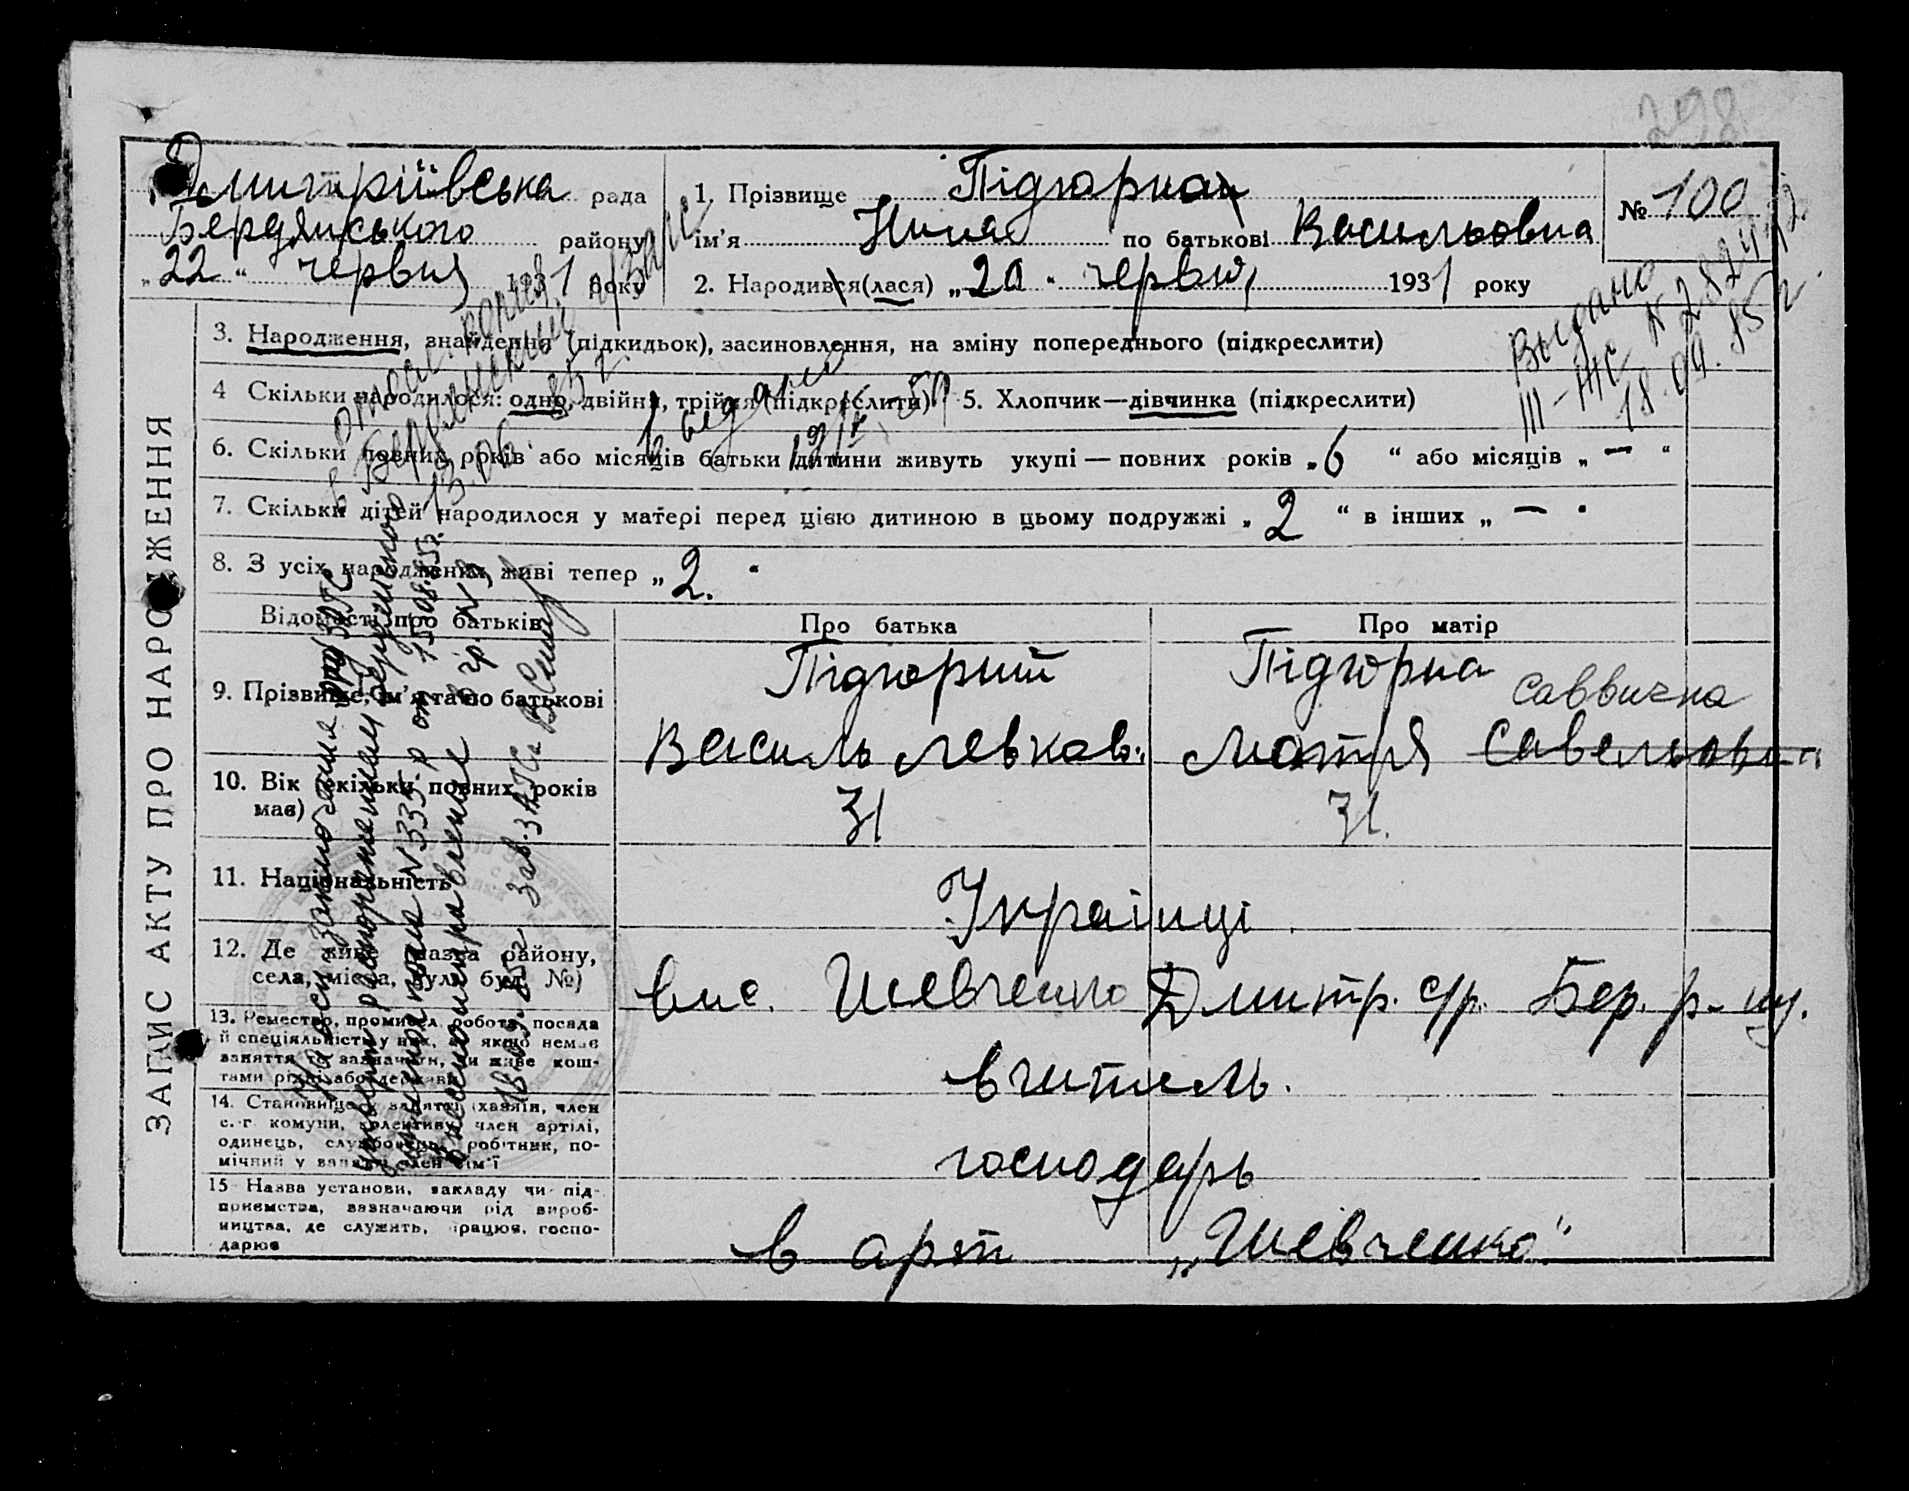 298
Дмитріївська рада
Бердянського району
„22“ червня 1931 року
1. Прізвище Підгорна
ім’я Нина по батькові Васильовна
2. Народився(лася) „20“ червня 1931 року
№ 100
Выдано
III-ЖС N 282442
18.09.85г.
3. Народження, знайдення (підкидьок), засиновлення, на зміну попереднього (підкреслити)
4 Скільки народилося: одно, двійня, трійня (підкреслити) 5. Хлопчик—дівчинка (підкреслити)
6. Скільки повних років або місяців батьки дитини живуть укупі — повних років „6“ або місяців „—“
7. Скільки дітей народилося у матері перед цією дитиною в цьому подружжі „2“ в інших „—“
8. З усіх народжених живі тепер „2.“
Відомості про батьків Про батька Про матір
9. Прізвище, ім’я та по батькові
Підгорний
Василь Левков.
Підгорна Саввична
Мотря Савельовна
10. Вік (скільки повних років має) 31 31.
11. Національність Українці.
12. Де живе (назва району, села, міста, вул., буд. №)
вис. Шевченко Дмитр. с/р. Бер. р-ну.
13. Ремество, промисел, робота, посада й спеціяльність у них, а якщо немає заняття то зазначити, чи живе коштами рідні або держави
вчитель.
14. Становище у занятті (хазяїн, член с.-г. комуни, колективу, член артілі, одинець, службовець, робітник, помічний у занятті член сім’ї
господарь
15 Назва установи, закладу чи підприємства, зазначаючи рід виробництва, де служить, працює, господарює
в арт „Шевченко“
ЗАПИС АКТУ ПРО НАРОДЖЕННЯ
13.06.85г
На основании заключения
N 335 р от 15.08.85г.
внесено исправление в гр. N 9
18.09.85г. Зав. ЗАГСа